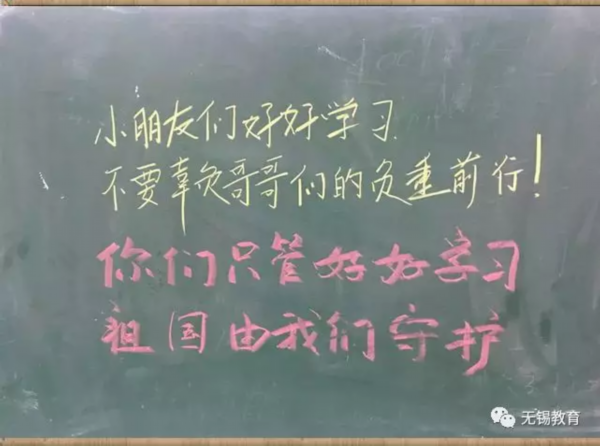 小朋友们好好学习
不要辜负哥哥们的负重前行!
你们只管好好学习
祖国由我们守护
无锡教育